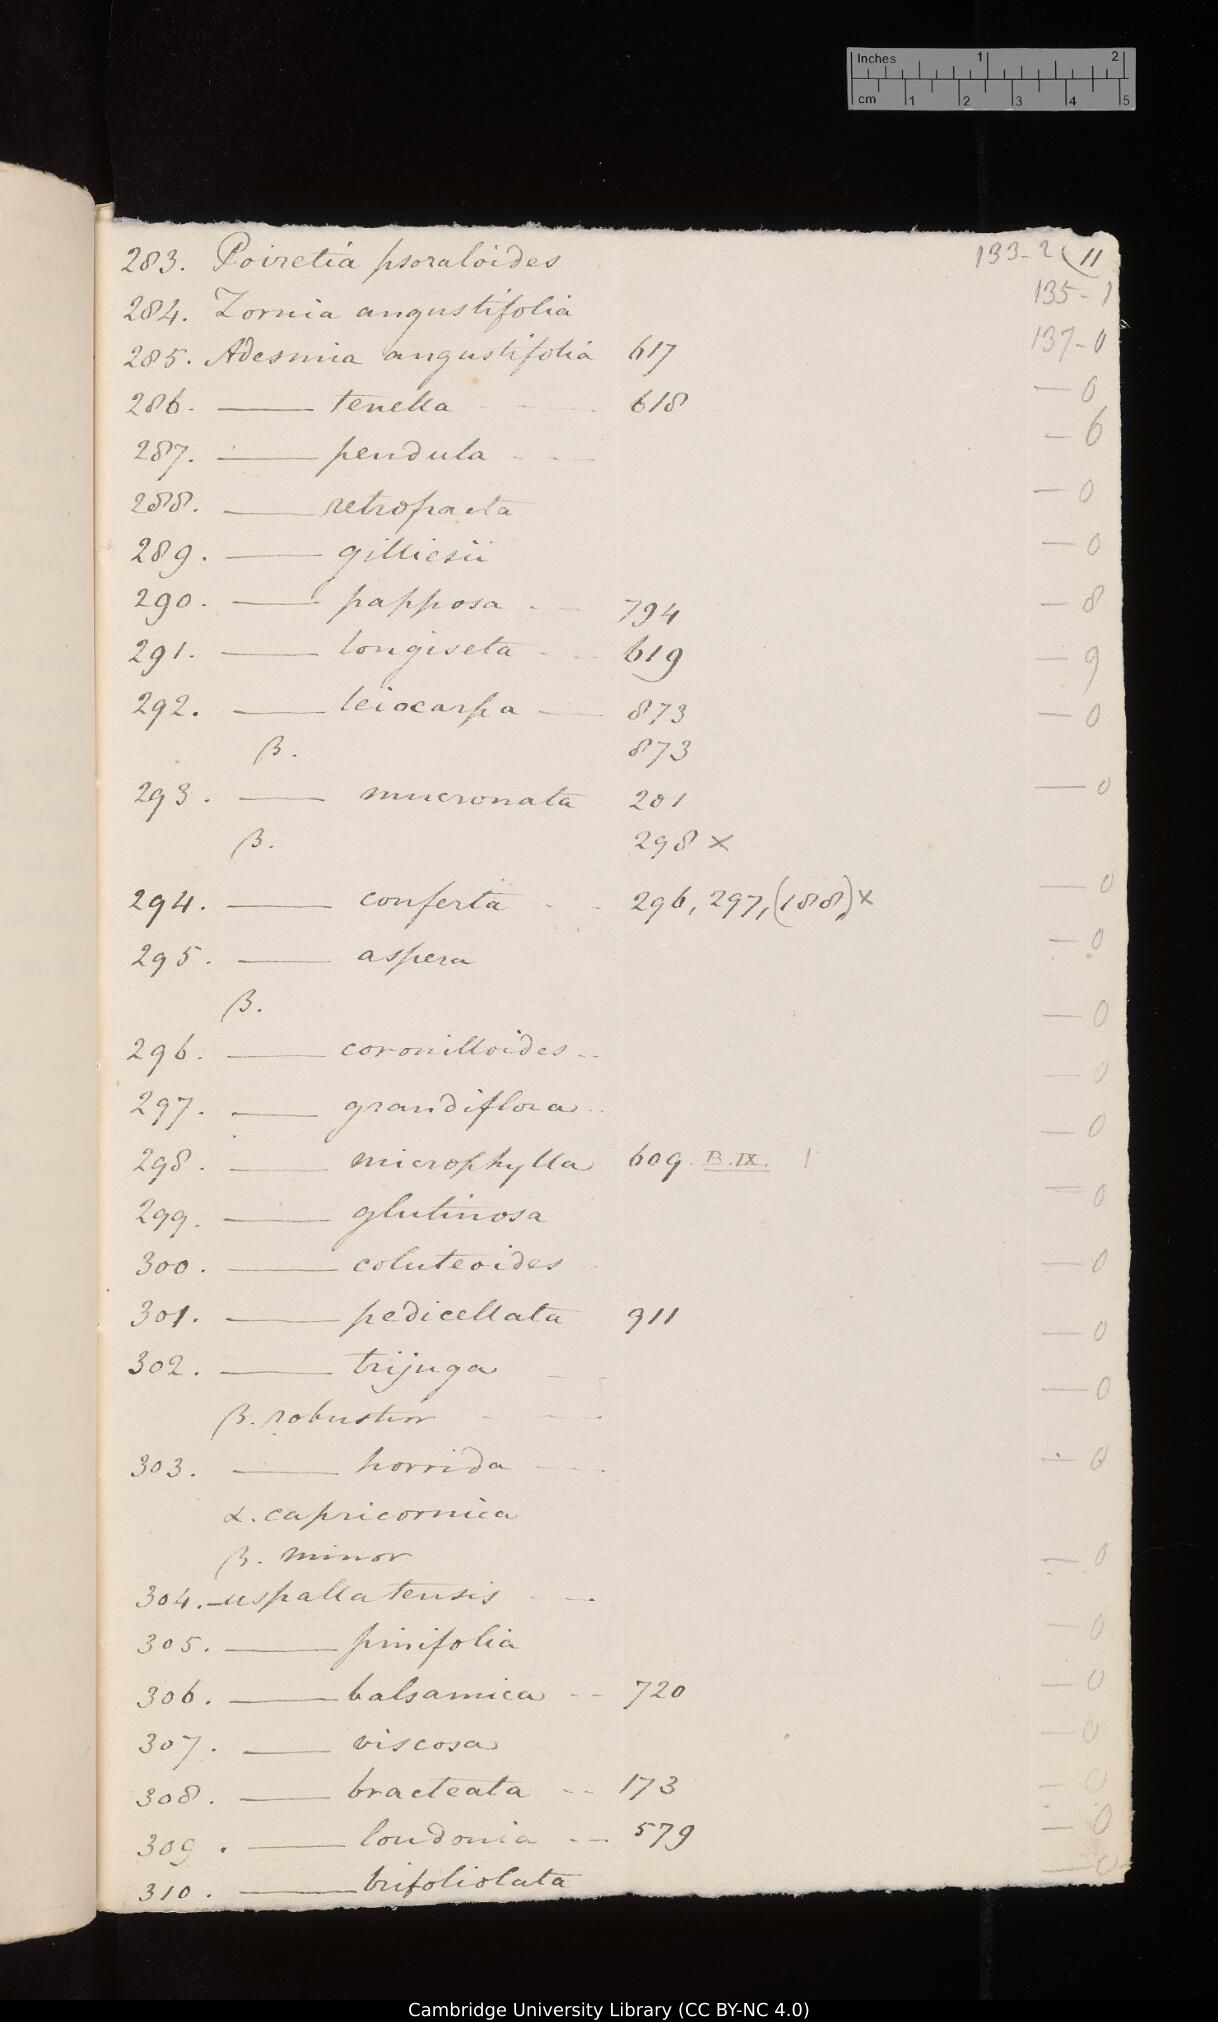 Inches 1 2
cm 1 2 3 4 5
283. Poiretia psoraloides 133-2 (11
284. Zornia angustifolia 135-1
285. Adesmia angustifolia 617 137-0
286. —— tenella 618 —0
287. —— pendula —6
288. —— retrofracta —0
289. —— gilliesii —0
290. —— papposa 794 —8
291. —— longiseta 619 —9
292. —— leiocarpa 873 —0
β. 873
293. —— mucronata 201 —0
β. 298 ×
294. —— conferta 296, 297, (188) × —0
295. —— aspera —0
β. —0
296. —— coronilloides —0
297. —— grandiflora —0
298. —— microphylla 609. B.IX.
299. —— glutinosa —0
300. —— coluteoides —0
301. —— pedicellata 911 —0
302. —— trijuga —0
β. robustior
303. —— horrida —0
α. capricornica
β. minor —0
304. — uspallatensis
305. —— pinifolia —0
306. —— balsamica 720 —0
307. —— viscosa —0
308. —— bracteata 173 —0
309. —— loudonia 579 —0
310. —— trifoliolata —0
Cambridge University Library (CC BY-NC 4.0)